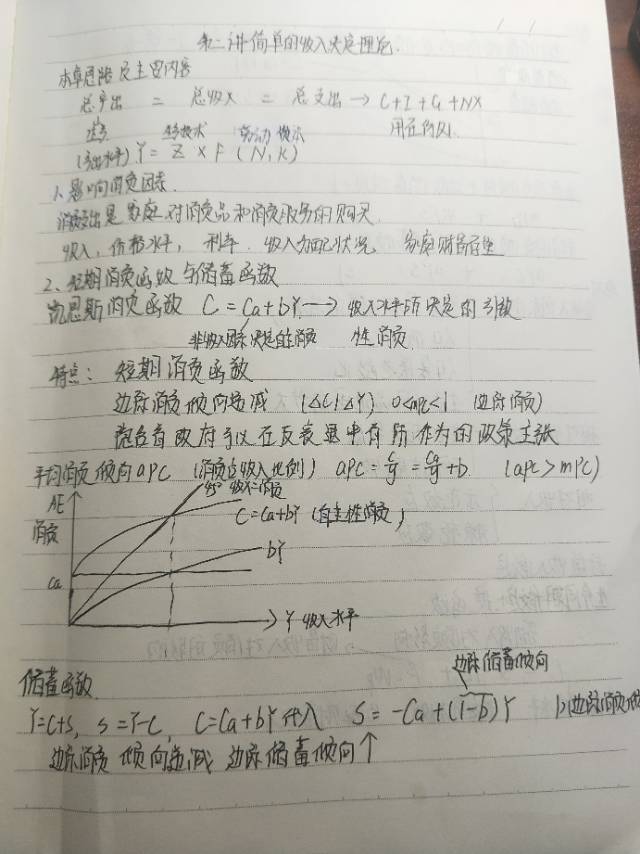 第二讲 简单的收入决定理论
本章思路及主要内容
总产出 = 总收入 = 总支出 → C+I+G+NX
技术 劳动 资本 用在何处
(产出水平) Y = Z × F (N, K)
1、影响消费因素
消费支出是家庭对消费品和消费服务的购买
收入, 价格水平, 利率, 收入分配状况, 家庭财富存量
2、短期消费函数与储蓄函数
凯恩斯消费函数 C = Ca + bY → 收入水平所决定的引致
非收入因素决定的消费 性消费
特点: 短期消费函数
边际消费倾向递减 (ΔC/ΔY) 0<mpc<1 (边际消费)
隐含着政府可以在反衰退中有所作为的政策主张
平均消费倾向apc (消费占收入比例) apc = C/y = Ca/y + b. (apc > mpc)
45° 收入=消费
AE
消费
C=Ca+bY (自主性消费)
bY
Ca
Y 收入水平
储蓄函数
边际储蓄倾向
Y=C+S, S=Y-C, C=Ca+bY 代入 S = -Ca + (1-b)Y 1>边际消费倾
边际消费倾向递减 边际储蓄倾向↑